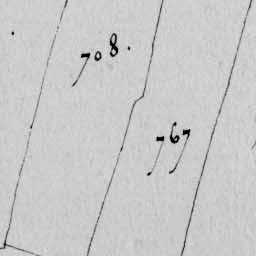 708.
767